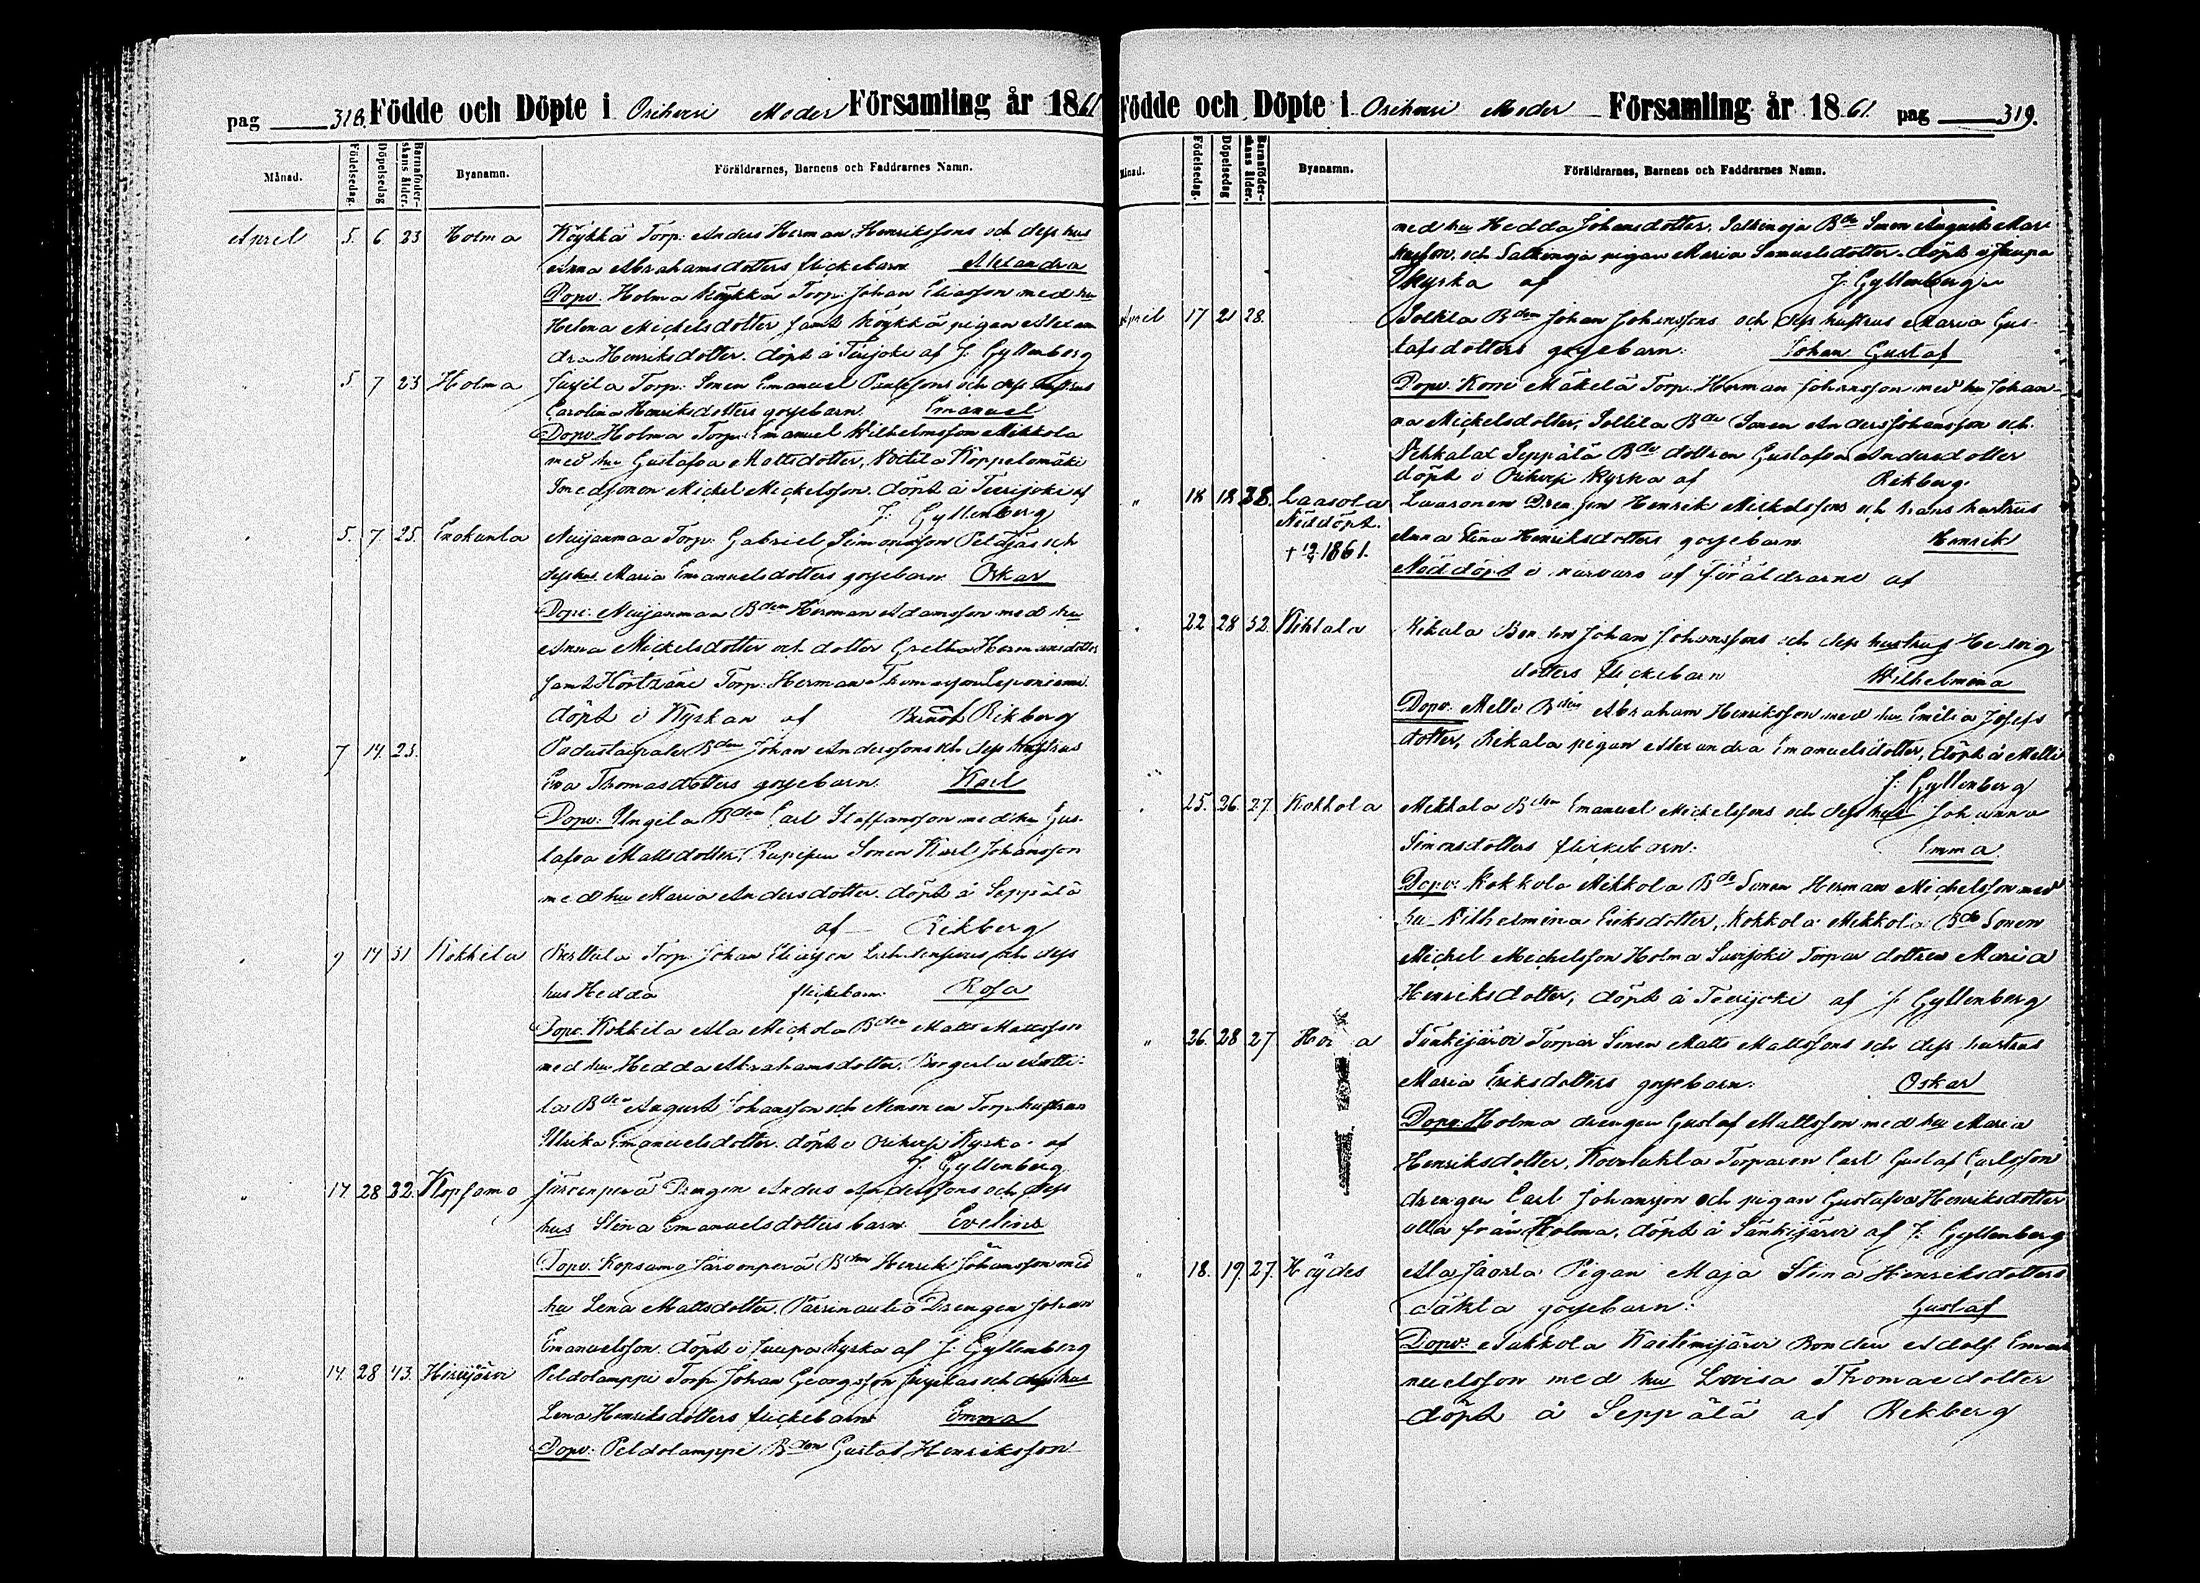 pag 318. Födde och Döpte i Orihvesi Moder Församling år 1861
Månad. Födelsedag. Döpelsedag Barnaföderskans ålder. Byanamn. Föräldrarnes, Barnens och Faddrarnes Namn.
April 5. 6 23 Holma Köykkä Torp: Anders Herman Henrikssons och dess hus
Anna Abrahamsdotters flickebarn Alexandra
Dopv. Holma Köykkä Torp: Johan Eliasson med hu
Helena Michelsdotter samt Köykkä pigan Alexan
dra Henriksdotter. döpt å Teerijoki af J. Gyllenberg
5 7 23 Holma Torp: Sonen Emanuel och dess hustrus
Carolina Henriksdotters gossebarn. Emanuel
Dopv. Holma Torp: Emanuel Wilhelmsson Mikkola
med hu Gustafva Mattsdotter, Koppelomäki
Smedsonen Michel Michelsson. döpt å Teerijoki af
J. Gyllenberg
5. 7 25. Enokunta Nuijanmaa Torp: Gabriel Simonsson och
dess hus. Maria Emanuelsdotters gossebarn Oskar
Dopv: Nuijanmaa Bden Herman Adamsson med hu
Anna Mickelsdotter och dotter Gretha Hermansdotter
samt Torp: Herman
döpt i Kyrkan af Rikberg
" 7 14. 23. Bden Johan Anderssons och dess hustrus
Eva Thomasdotters gossebarn. Karl
Dopv: Ungila Bden Carl Staffansson med hu Gus-
tafva Mattsdotter, Sonen Karl Johansson
med hu Maria Andersdotter. döpt å Seppälä
af Rikberg
9 14 31 Kokkila Torp: Johan och dess
hus Hedda flickebarn Rosa
Dopv. Kokkila Ala Mickola Bden Matts Mattsson
med hu Hedda Abrahamsdotter,
la Bden August Johansson och Torp. hustrun
Ulrika Emanuelsdotter. döpt i Orihvesi Kyrka af
J. Gyllenberg
" 14 28 32. Kopsamo Järvenperä Drengen Anders Anderssons och dess
hus Stina Emanuelsdotters barn Evelina
Dopv. Kopsamo Järvenperä Bden Henrik Johansson med
hu Lena Mattsdotter. Drengen Johan
Emanuelsson. döpt i Juupa kyrka af J. Gyllenberg
" 14. 28 43. Hirsijärvi Peldolamppi Torp: Johan Georgsson och dess hus
Lena Henriksdotters flickebarn Emma
Dopv: Peldolamppi Bden Gustaf Henriksson
Födde och Döpte i Orihvesi Moder Församling år 1861. pag 319.
Månad. Födelsedag. Döpelsedag Barnaföderskans ålder. Byanamn. Föräldrarnes, Barnens och Faddrarnes Namn.
med hu Hedda Johansdotter, Salkinoja Bde Sonen August Mar-
kusson och Salkinoja pigan Maria Samuelsdotter. döpt i Juupa
Kyrka af J. Gyllenberg
April 17 21 28. Bden Johan Johanssons och dess hustrus Maria Gus-
tafsdotters gossebarn. Johan Gustaf
Dopv. Mäkelä Torp. Herman Johansson med hu Johan-
na Mickelsdotter, Bde Sonen Anders Johansson och
Seppälä Bde dottren Gustafva Andersdotter
döpt i Orihvesi Kyrka af Rikberg.
" 18 18 38. Laasola Laasonen Drengen Henrik Mickelssons och hans hustrus
Nöddöpt. Anna Stina Henriksdotters gossebarn Henrik
+ 1861. Nöddöpt i närvaro af föräldrarne af
22 28 32. Rikala Johan Johanssons och dess hustrus Hedvig
dotters flickebarn Wilhelmina
Dopv. Melli Bden Abraham Henriksson med hu Emilia Josefs
dotter, Rikala pigan Alexandra Emanuelsdotter, döpt å Melli
J. Gyllenberg
25. 26. 27. Kokkola Mikkola Bden Emanuel Mickelssons och dess hus Johanna
Simonsdotters flickebarn: Emma.
Dopv: Kokkola Mikkola Bde Sonen Herman Michelsson med
hu Wilhelmina Eriksdotter, Kokkola Mikkola Bde Sonen
Michel Michelsson Holma Torpar dottren Maria
Henriksdotter, döpt å Teerijoki af J. Gyllenberg
" 26. 28 27 Ho a Sänkijärvi Torpar Sonen Matts Mattssons och dess hustrus
Maria Eriksdotters gossebarn. Oskar
Dopv. Holma drengen Gustaf Mattsson med hu Maria
Henriksdotter, Torparen Carl Gustaf Carlsson
drengen Carl Johansson och pigan Gustafva Henriksdotter
alla från Holma, döpt å Sänkijärvi af J. Gyllenberg
" 18. 19. 27. Höydes Ala Jaarla Pigan Maja Stina Henriksdotters
oäkta gossebarn: Gustaf
Dopv: Sakkola Kaitimijärvi Bonden Adolf Ema-
nuelsson med hu Lovisa Thomasdotter
döpt å Seppälä af Rikberg